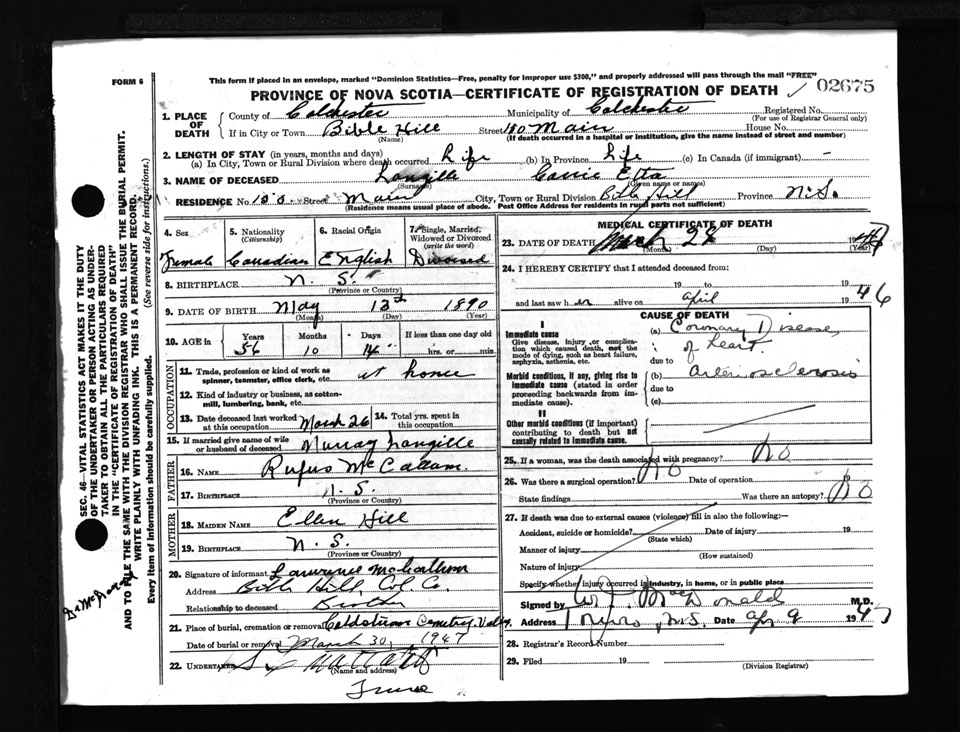 FORM 6
This form if placed in an envelope, marked "Dominion Statistics—Free, penalty for improper use $300," and properly addressed will pass through the mail "FREE"
PROVINCE OF NOVA SCOTIA—CERTIFICATE OF REGISTRATION OF DEATH
02675
1. PLACE OF DEATH
County of Colchester Municipality of Colchester Registered No.
(For use of Registrar General only)
If in City or Town Bible Hill Street 150 Main House No.
(Name) (If death occurred in a hospital or institution, give the name instead of street and number)
2. LENGTH OF STAY (in years, months and days)
(a) In City, Town or Rural Division where death occurred Life (b) In Province Life (c) In Canada (if immigrant) -
3. NAME OF DECEASED Langille Carrie Etta
(Surname) (Given name or names)
RESIDENCE No. 150 Street Main City, Town or Rural Division Bible Hill Province N.S.
(Residence means usual place of abode. Post Office Address for residents in rural parts not sufficient)
4. Sex 5. Nationality (Citizenship) 6. Racial Origin 7. Single, Married, Widowed or Divorced (write the word)
Female Canadian English Divorced
8. BIRTHPLACE N. S.
(Province or Country)
9. DATE OF BIRTH May 13th 1890
(Month) (Day) (Year)
10. AGE in Years Months Days If less than one day old
56 10 14 hrs. or min.
OCCUPATION
11. Trade, profession or kind of work as spinner, teamster, office clerk, etc. at home
12. Kind of industry or business, as cotton-mill, lumbering, bank, etc.
13. Date deceased last worked at this occupation March 26 14. Total yrs. spent in this occupation
15. If married give name of wife or husband of deceased Murray Langille
FATHER
16. NAME Rufus McCallum
17. BIRTHPLACE N. S.
(Province or Country)
MOTHER
18. MAIDEN NAME Ellen Hill
19. BIRTHPLACE N. S.
(Province or Country)
20. Signature of informant Lawrence McCallum
Address Bible Hill, Col. Co.
Relationship to deceased Brother
21. Place of burial, cremation or removal Coldstream Cemetry
Date of burial or removal March 30, 1947
22. UNDERTAKER
(Name and address)
Truro
MEDICAL CERTIFICATE OF DEATH
23. DATE OF DEATH March 28 1947
(Month) (Day)
24. I HEREBY CERTIFY that I attended deceased from:
19 to 19
and last saw her alive on April 1946
CAUSE OF DEATH
I
Immediate cause
Give disease, injury or complication which caused death, not the mode of dying, such as heart failure, asphyxia, asthenia, etc.
(a) Coronary Disease
of heart.
due to
Morbid conditions, if any, giving rise to immediate cause (stated in order proceeding backwards from immediate cause).
(b) Arteriosclerosis
due to
(c)
II
Other morbid conditions (if important) contributing to death but not causally related to immediate cause.
25. If a woman, was the death associated with pregnancy? No
26. Was there a surgical operation? No Date of operation 19
State findings Was there an autopsy? No
27. If death was due to external causes (violence) fill in also the following:—
Accident, suicide or homicide? Date of injury 19
(State which)
Manner of injury
(How sustained)
Nature of injury
Specify whether injury occurred in industry, in home, or in public place
Signed by W. J. MacDonald M.D.
Address Truro, N.S. Date Apr 9 1947
28. Registrar's Record Number
29. Filed 19
(Division Registrar)
SEC. 46—VITAL STATISTICS ACT MAKES IT THE DUTY OF THE UNDERTAKER OR PERSON ACTING AS UNDERTAKER TO OBTAIN ALL THE PARTICULARS REQUIRED IN THE "CERTIFICATE OF REGISTRATION OF DEATH" AND TO FILE THE SAME WITH THE DIVISION REGISTRAR WHO SHALL ISSUE THE BURIAL PERMIT.
WRITE PLAINLY WITH UNFADING INK. THIS IS A PERMANENT RECORD.
Every item of information should be carefully supplied. (See reverse side for instructions.)